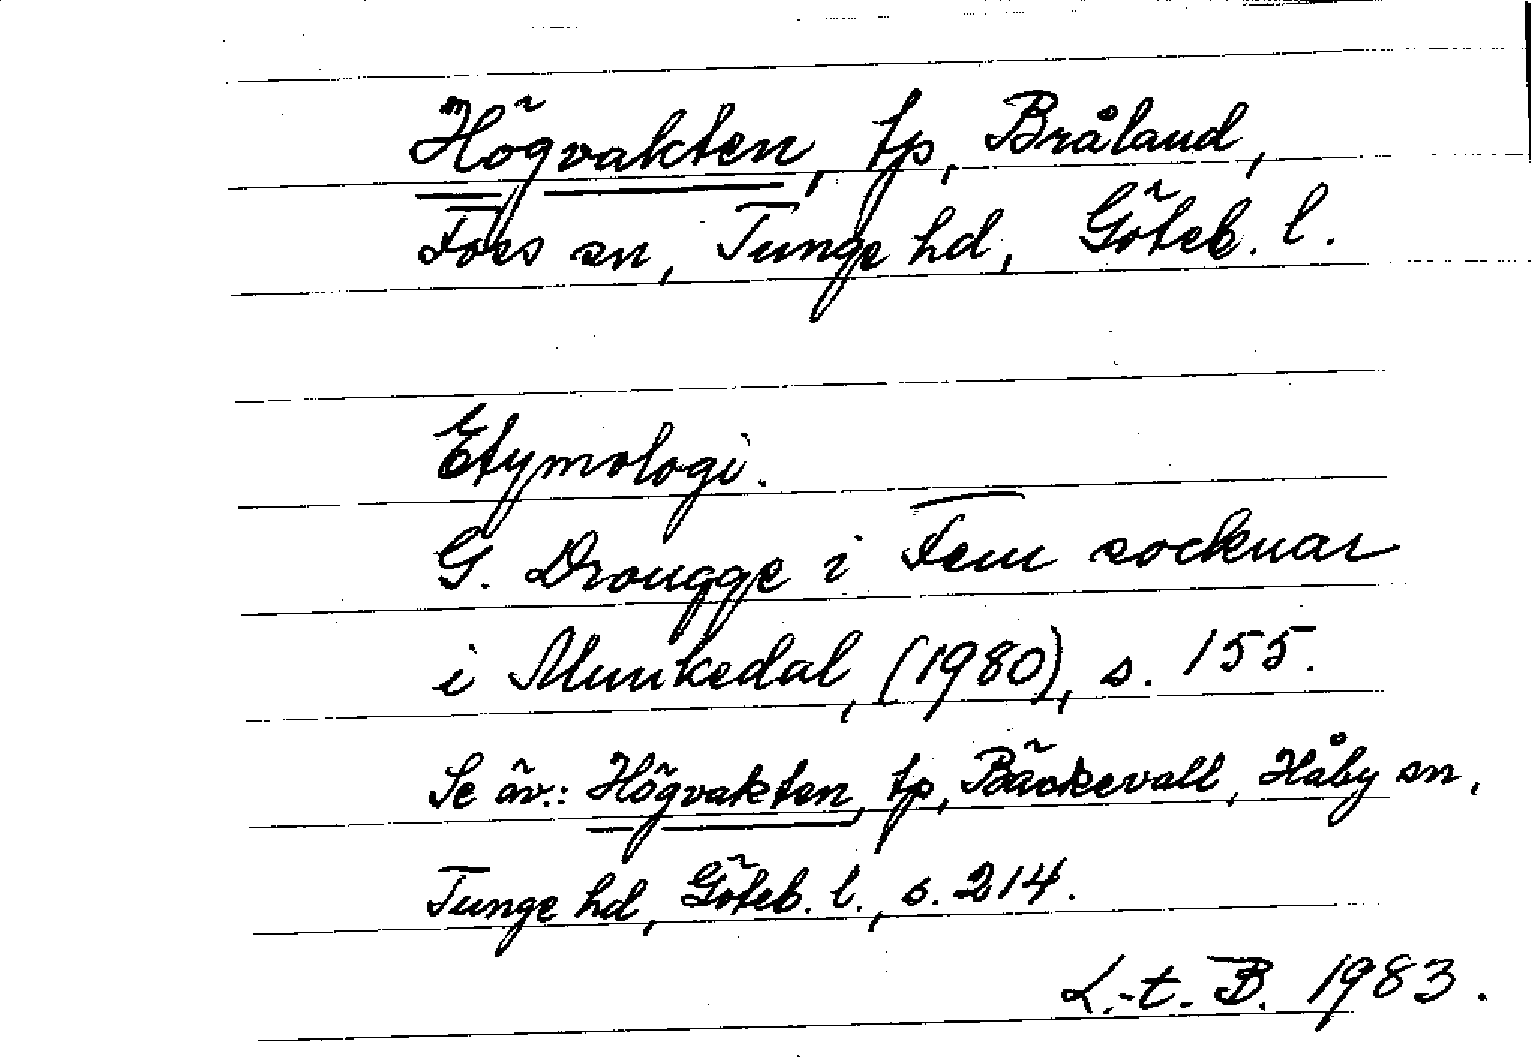 Högvakten, tp, Bråland,
Foss sn, Tunge hd, Göteb. l.
Etymologi.
G. Drougge i Fem socknar
i Munkedal, (1980), s. 155.
Se äv.: Högvakten, tp, Bäckevall, Håby sn,
Tunge hd, Göteb. l., s. 214.
L.-t. B. 1983.